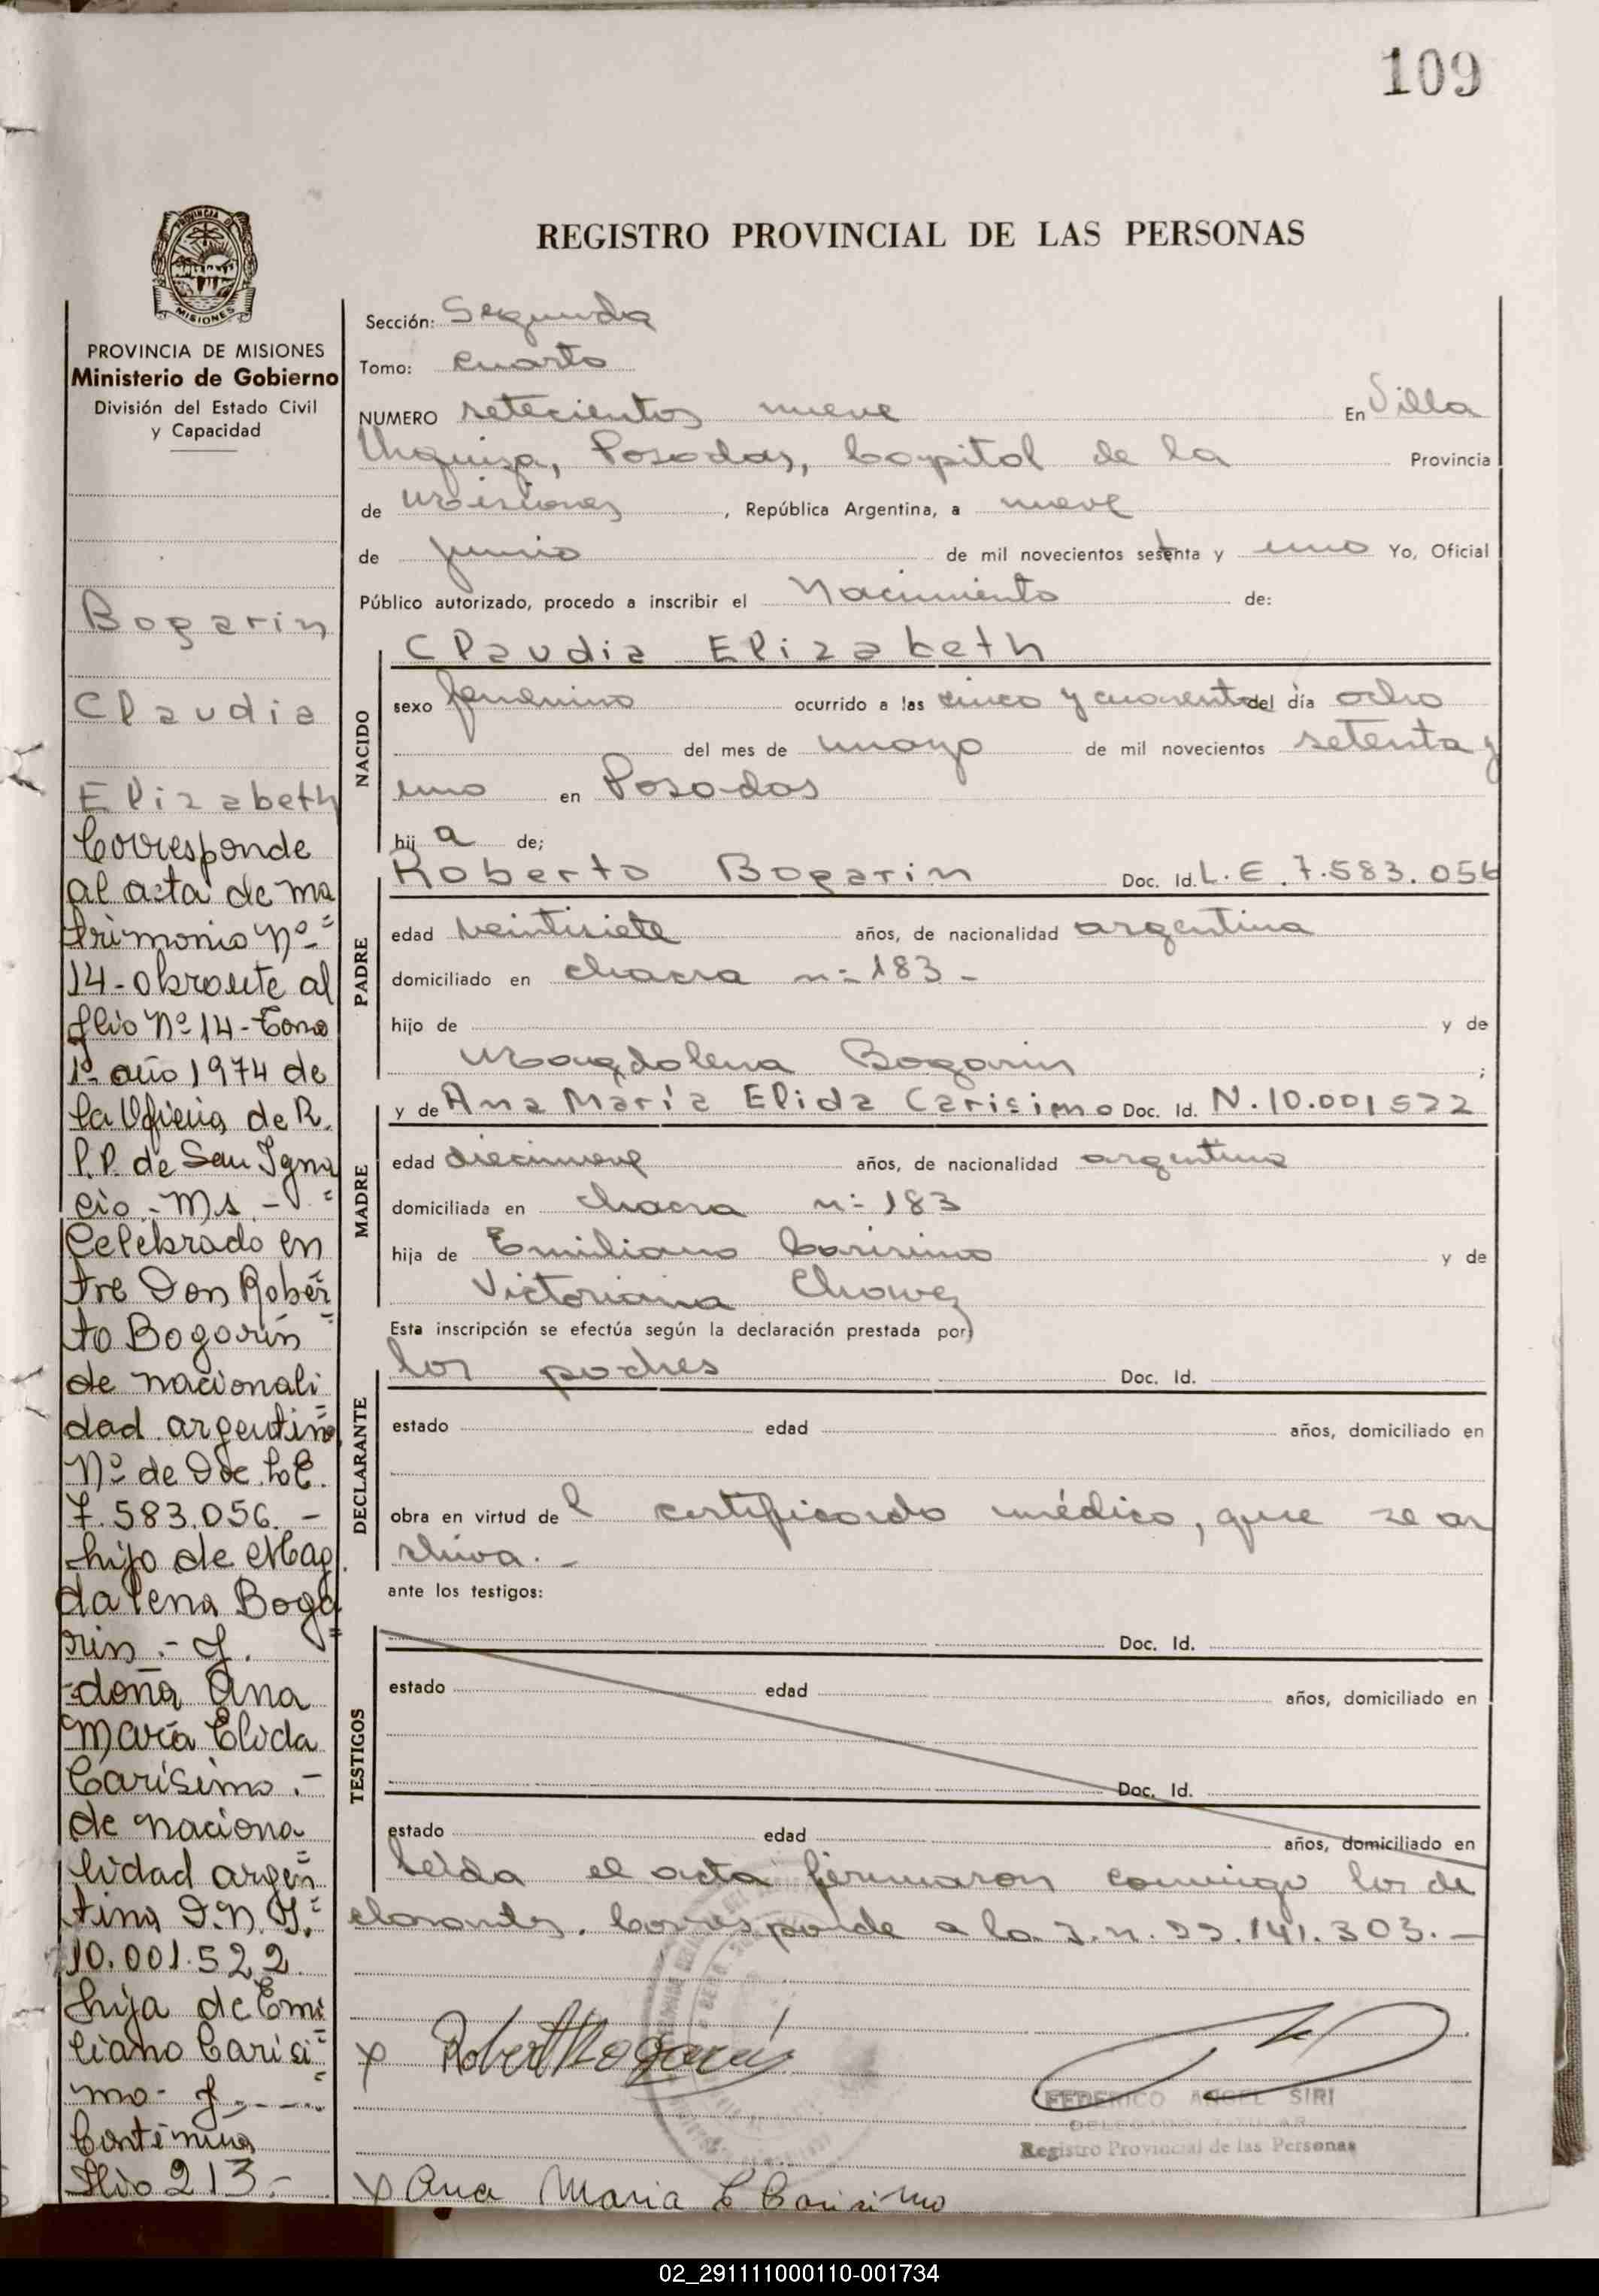 109
REGISTRO PROVINCIAL DE LAS PERSONAS
PROVINCIA DE
MISIONES
PROVINCIA DE MISIONES
Ministerio de Gobierno
División del Estado Civil
y Capacidad
Bogarin
Claudia
Elizabeth
Corresponde
al acta de ma
trimonio Nº
14-obrante al
flio Nº 14-Tomo
1º año 1974 de
la Oficina de R.
P.P. de San Igna
cio.-Ms.-
Celebrado en
tre Don Rober
to Bogarin
de nacionali
dad argentino
Nº de Doc. L.E.
7.583.056.-
hijo de Mag
dalena Boga
rin.- y.
doña Ana
María Elida
Carísimo.-
de naciona
lidad argen
tina D.N.I.
10.001.522
hija de Emi
liano Carisi
mo- y
Continua
flio 213.-
Sección: Segunda
Tomo: cuarto
NUMERO setecientos nueve En Villa
Urquiza, Posadas, Capital de la Provincia
de Misiones, República Argentina, a nueve
de junio de mil novecientos setenta y uno Yo, Oficial
Público autorizado, procedo a inscribir el Nacimiento de:
NACIDO
Claudia Elizabeth
sexo femenino ocurrido a las cinco y cuarenta del día ocho
del mes de mayo de mil novecientos setenta y
uno en Posadas
hij a de;
PADRE
Roberto Bogarin Doc. Id. L.E. 7.583.056
edad veintisiete años, de nacionalidad argentina
domiciliado en chacra nº 183-
hijo de y de
Magdalena Bogarin ;
MADRE
y de Ana María Elida Carisimo Doc. Id. N.10.001522
edad diecinueve años, de nacionalidad argentina
domiciliada en chacra nº 183
hija de Emiliano Carisimo y de
Victoriana Chavez
Esta inscripción se efectúa según la declaración prestada por
DECLARANTE
los padres Doc. Id.
estado edad años, domiciliado en
obra en virtud de l certificado médico, que se ar
chiva.-
ante los testigos:
TESTIGOS
Doc. Id.
estado edad años, domiciliado en
Doc. Id.
estado edad años, domiciliado en
Leida el acta firmaron conmigo los de
clarantes. Corresponde a la I.N. 22.141.303.-
x Roberto Bogarin
FEDERICO ANGEL SIRI
DELEGADO TITULAR
Registro Provincial de las Personas
x Ana Maria E Carisimo
02_291111000110-001734